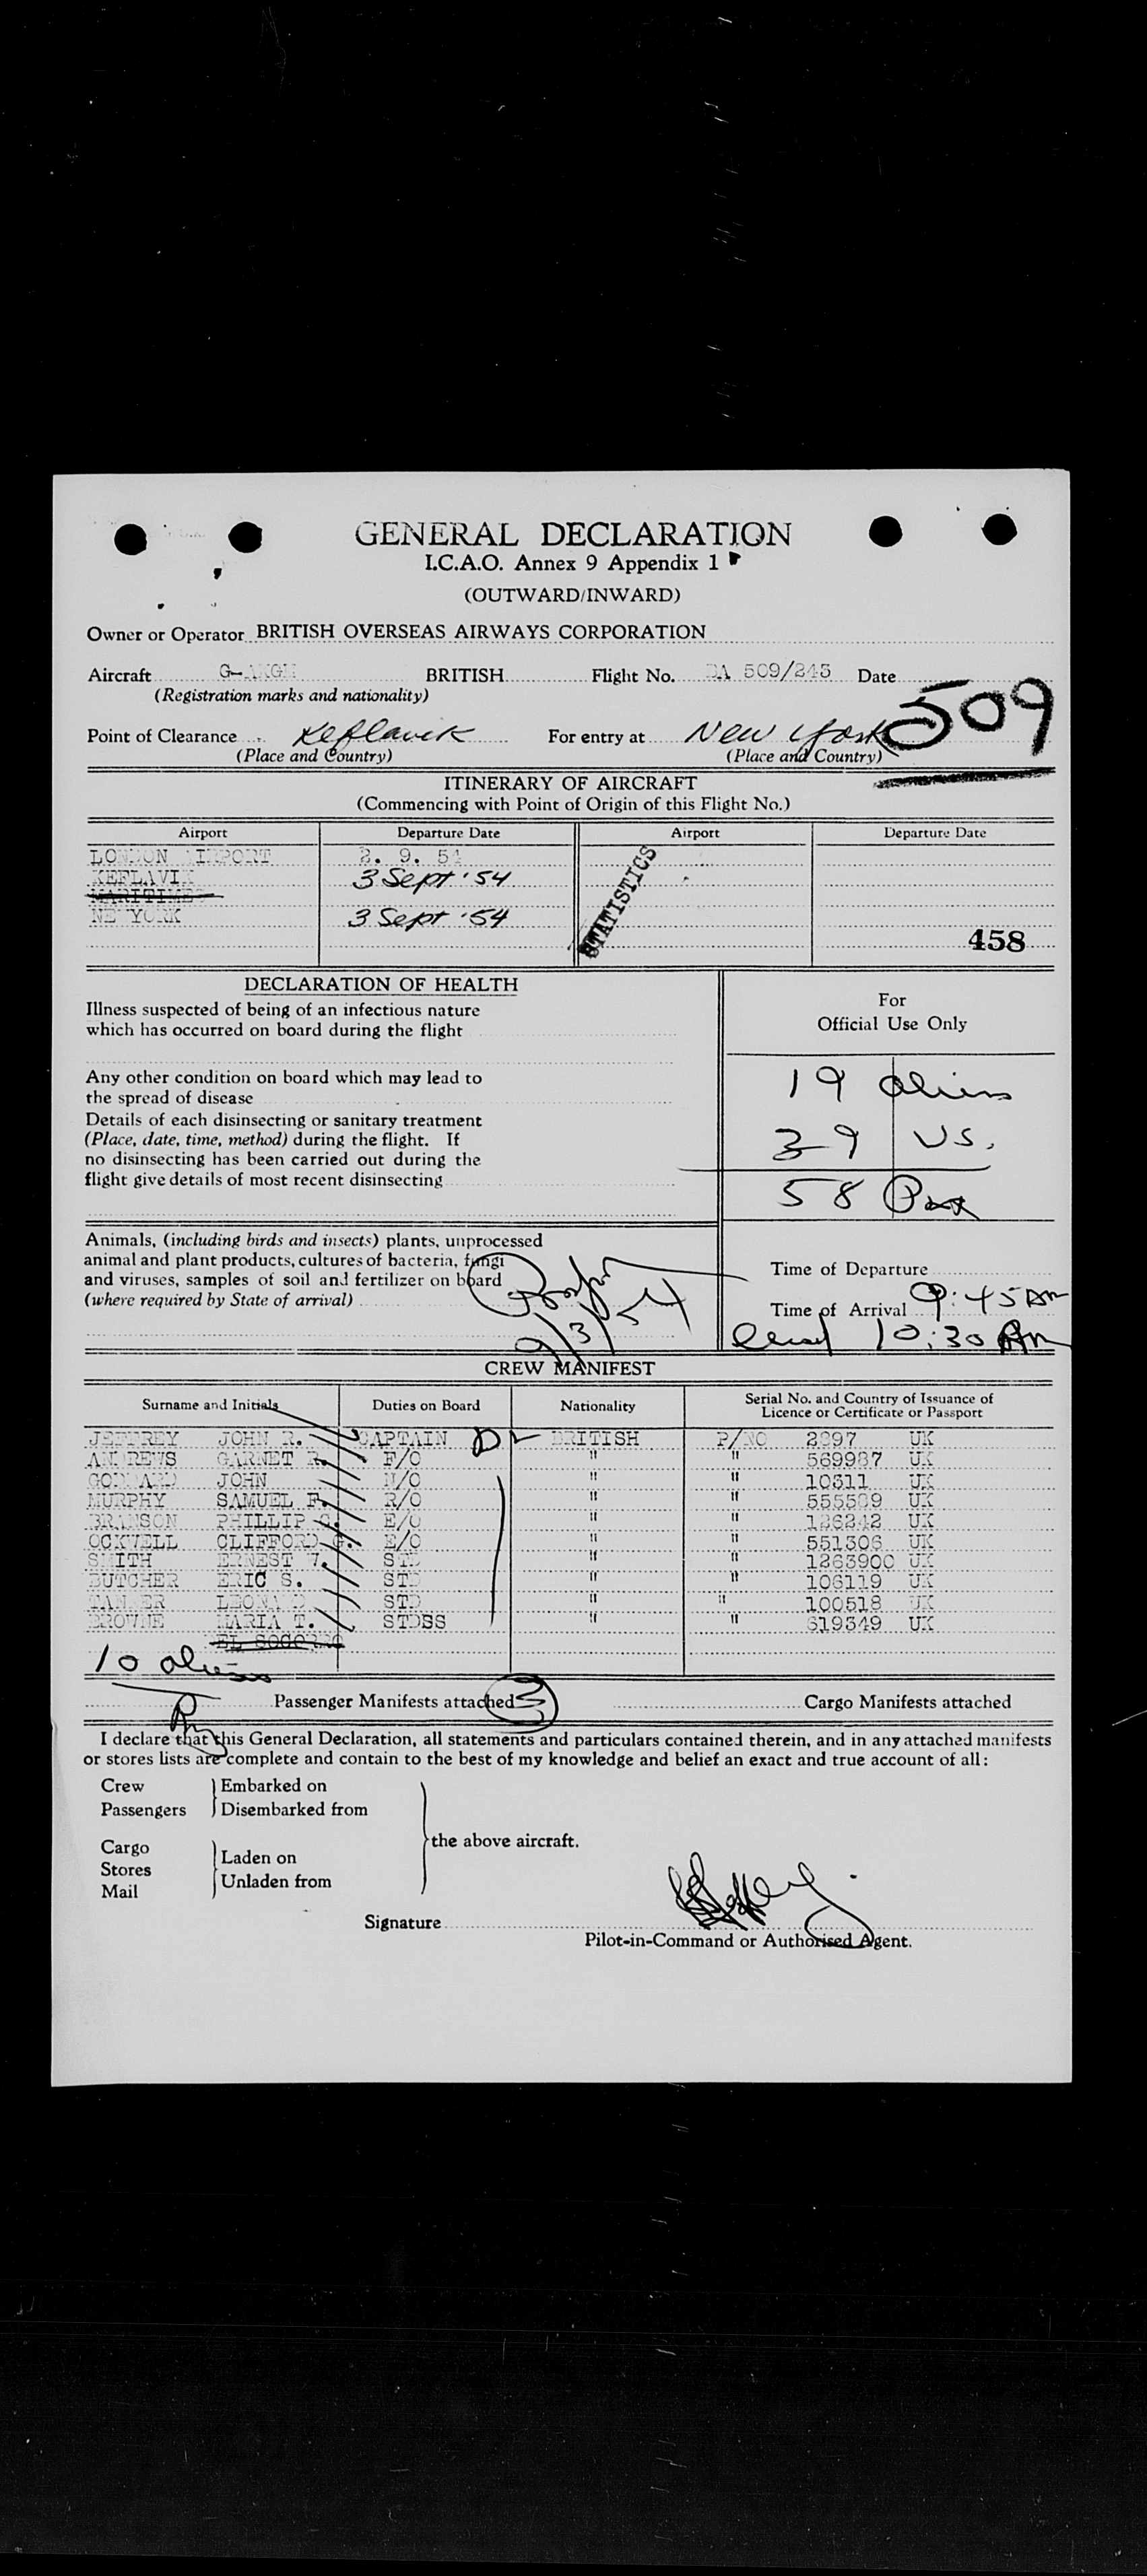 GENERAL DECLARATION
I.C.A.O. Annex 9 Appendix 1
(OUTWARD/INWARD)
Owner or Operator BRITISH OVERSEAS AIRWAYS CORPORATION
Aircraft BRITISH Flight No. BA 509/245 Date
(Registration marks and nationality)
509
Point of Clearance Keflavik For entry at New York
(Place and Country) (Place and Country)
ITINERARY OF AIRCRAFT
(Commencing with Point of Origin of this Flight No.)
Airport Departure Date Airport Departure Date
LONDON AIRPORT 2. 9. 54
KEFLAVIK 3 Sept '54
MARITIMES
NEW YORK 3 Sept '54
STATISTICS
458
DECLARATION OF HEALTH
Illness suspected of being of an infectious nature
which has occurred on board during the flight
Any other condition on board which may lead to
the spread of disease
Details of each disinsecting or sanitary treatment
(Place, date, time, method) during the flight. If
no disinsecting has been carried out during the
flight give details of most recent disinsecting
For
Official Use Only
19 aliens
39 US.
58 Pax
Animals, (including birds and insects) plants, unprocessed
animal and plant products, cultures of bacteria, fungi
and viruses, samples of soil and fertilizer on board
(where required by State of arrival)
9/3/54
Time of Departure
Time of Arrival 9:45 AM
10:30 AM
CREW MANIFEST
Surname and Initials Duties on Board Nationality Serial No. and Country of Issuance of
Licence or Certificate or Passport
JEFFREY JOHN R. CAPTAIN BRITISH P/NO 2897 UK
ANDREWS GARNET R. F/O " " 569987 UK
GODDARD JOHN N/O " " 10611 UK
MURPHY SAMUEL F. R/O " " 555509 UK
BRANSON PHILLIP E/O " " 126242 UK
OCKWELL CLIFFORD G. E/O " " 551306 UK
SMITH ERNEST STD " " 1263900 UK
BUTCHER ERIC S. STD " " 106119 UK
LEONARD STD " " 100518 UK
BROWNE MARIA T. STDSS " " 619349 UK
EL SOCORRO
10 aliens
Passenger Manifests attached 3 Cargo Manifests attached
I declare that this General Declaration, all statements and particulars contained therein, and in any attached manifests
or stores lists are complete and contain to the best of my knowledge and belief an exact and true account of all:
Crew Embarked on
Passengers Disembarked from
the above aircraft.
Cargo
Stores Laden on
Mail Unladen from
Signature
Pilot-in-Command or Authorised Agent.